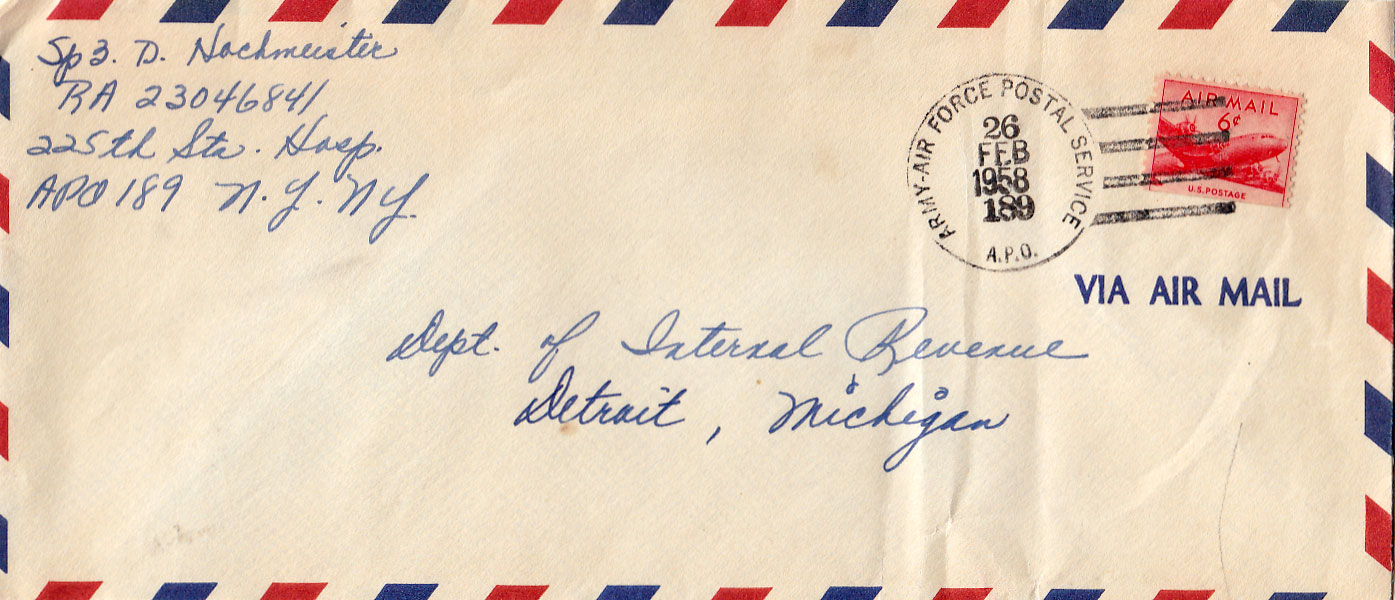 Sp3. D. Hochmeister
RA 23046841
225th Sta. Hosp.
APO 189 N.Y. NY.
ARMY-AIR FORCE POSTAL SERVICE
26
FEB
1958
189
A.P.O.
AIR MAIL
6¢
U.S. POSTAGE
VIA AIR MAIL
Dept. of Internal Revenue
Detroit, Michigan